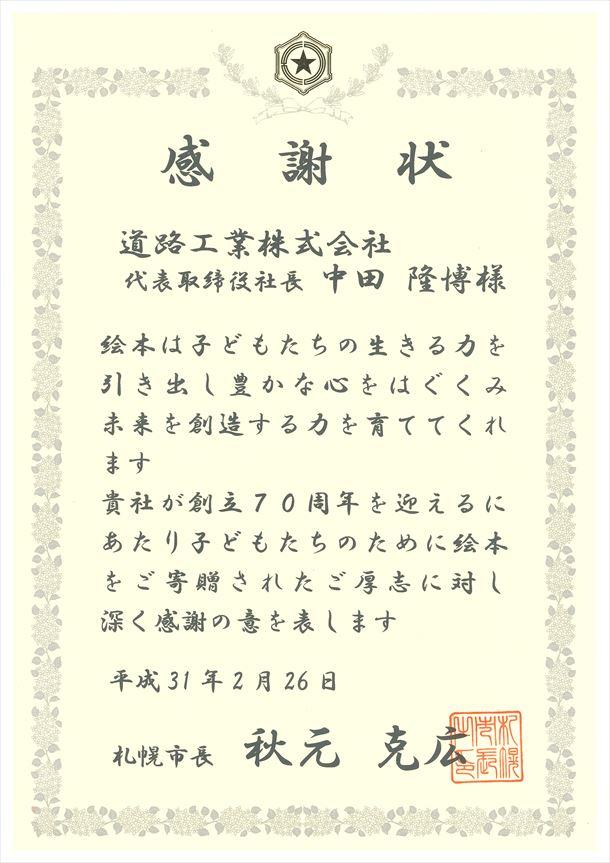 感謝状
道路工業株式会社
代表取締役社長 中田 隆博様
絵本は子どもたちの生きる力を
引き出し豊かな心をはぐくみ
未来を創造する力を育ててくれ
ます
貴社が創立70周年を迎えるに
あたり子どもたちのために絵本
をご寄贈されたご厚志に対し
深く感謝の意を表します
平成31年2月26日
札幌市長 秋元 克広
札幌市長之印